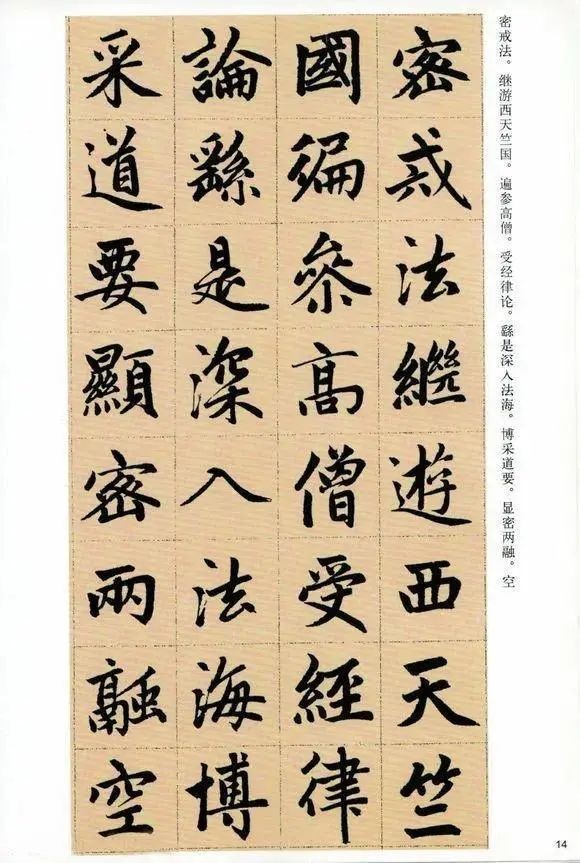 密戒法。继游西天竺国。遍参高僧。受经律论。繇是深入法海。博采道要。显密两融。空
密戒法繼遊西天竺
國徧叅高僧受經律
論繇是深入法海博
采道要顯密兩融空
14